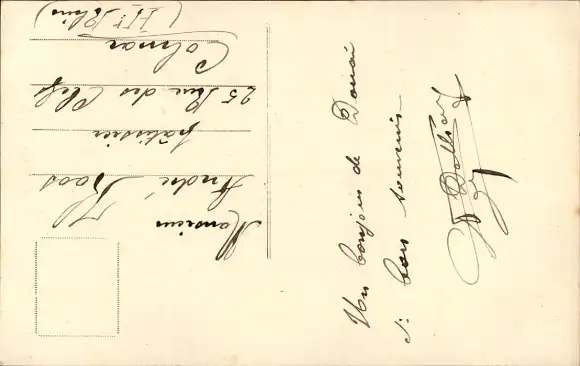 Monsieur
André Koos
pâtissier
25 Rue des Clefs
Colmar
(Ht Rhin)
Un bonjour de Douai
&. bons souvenirs